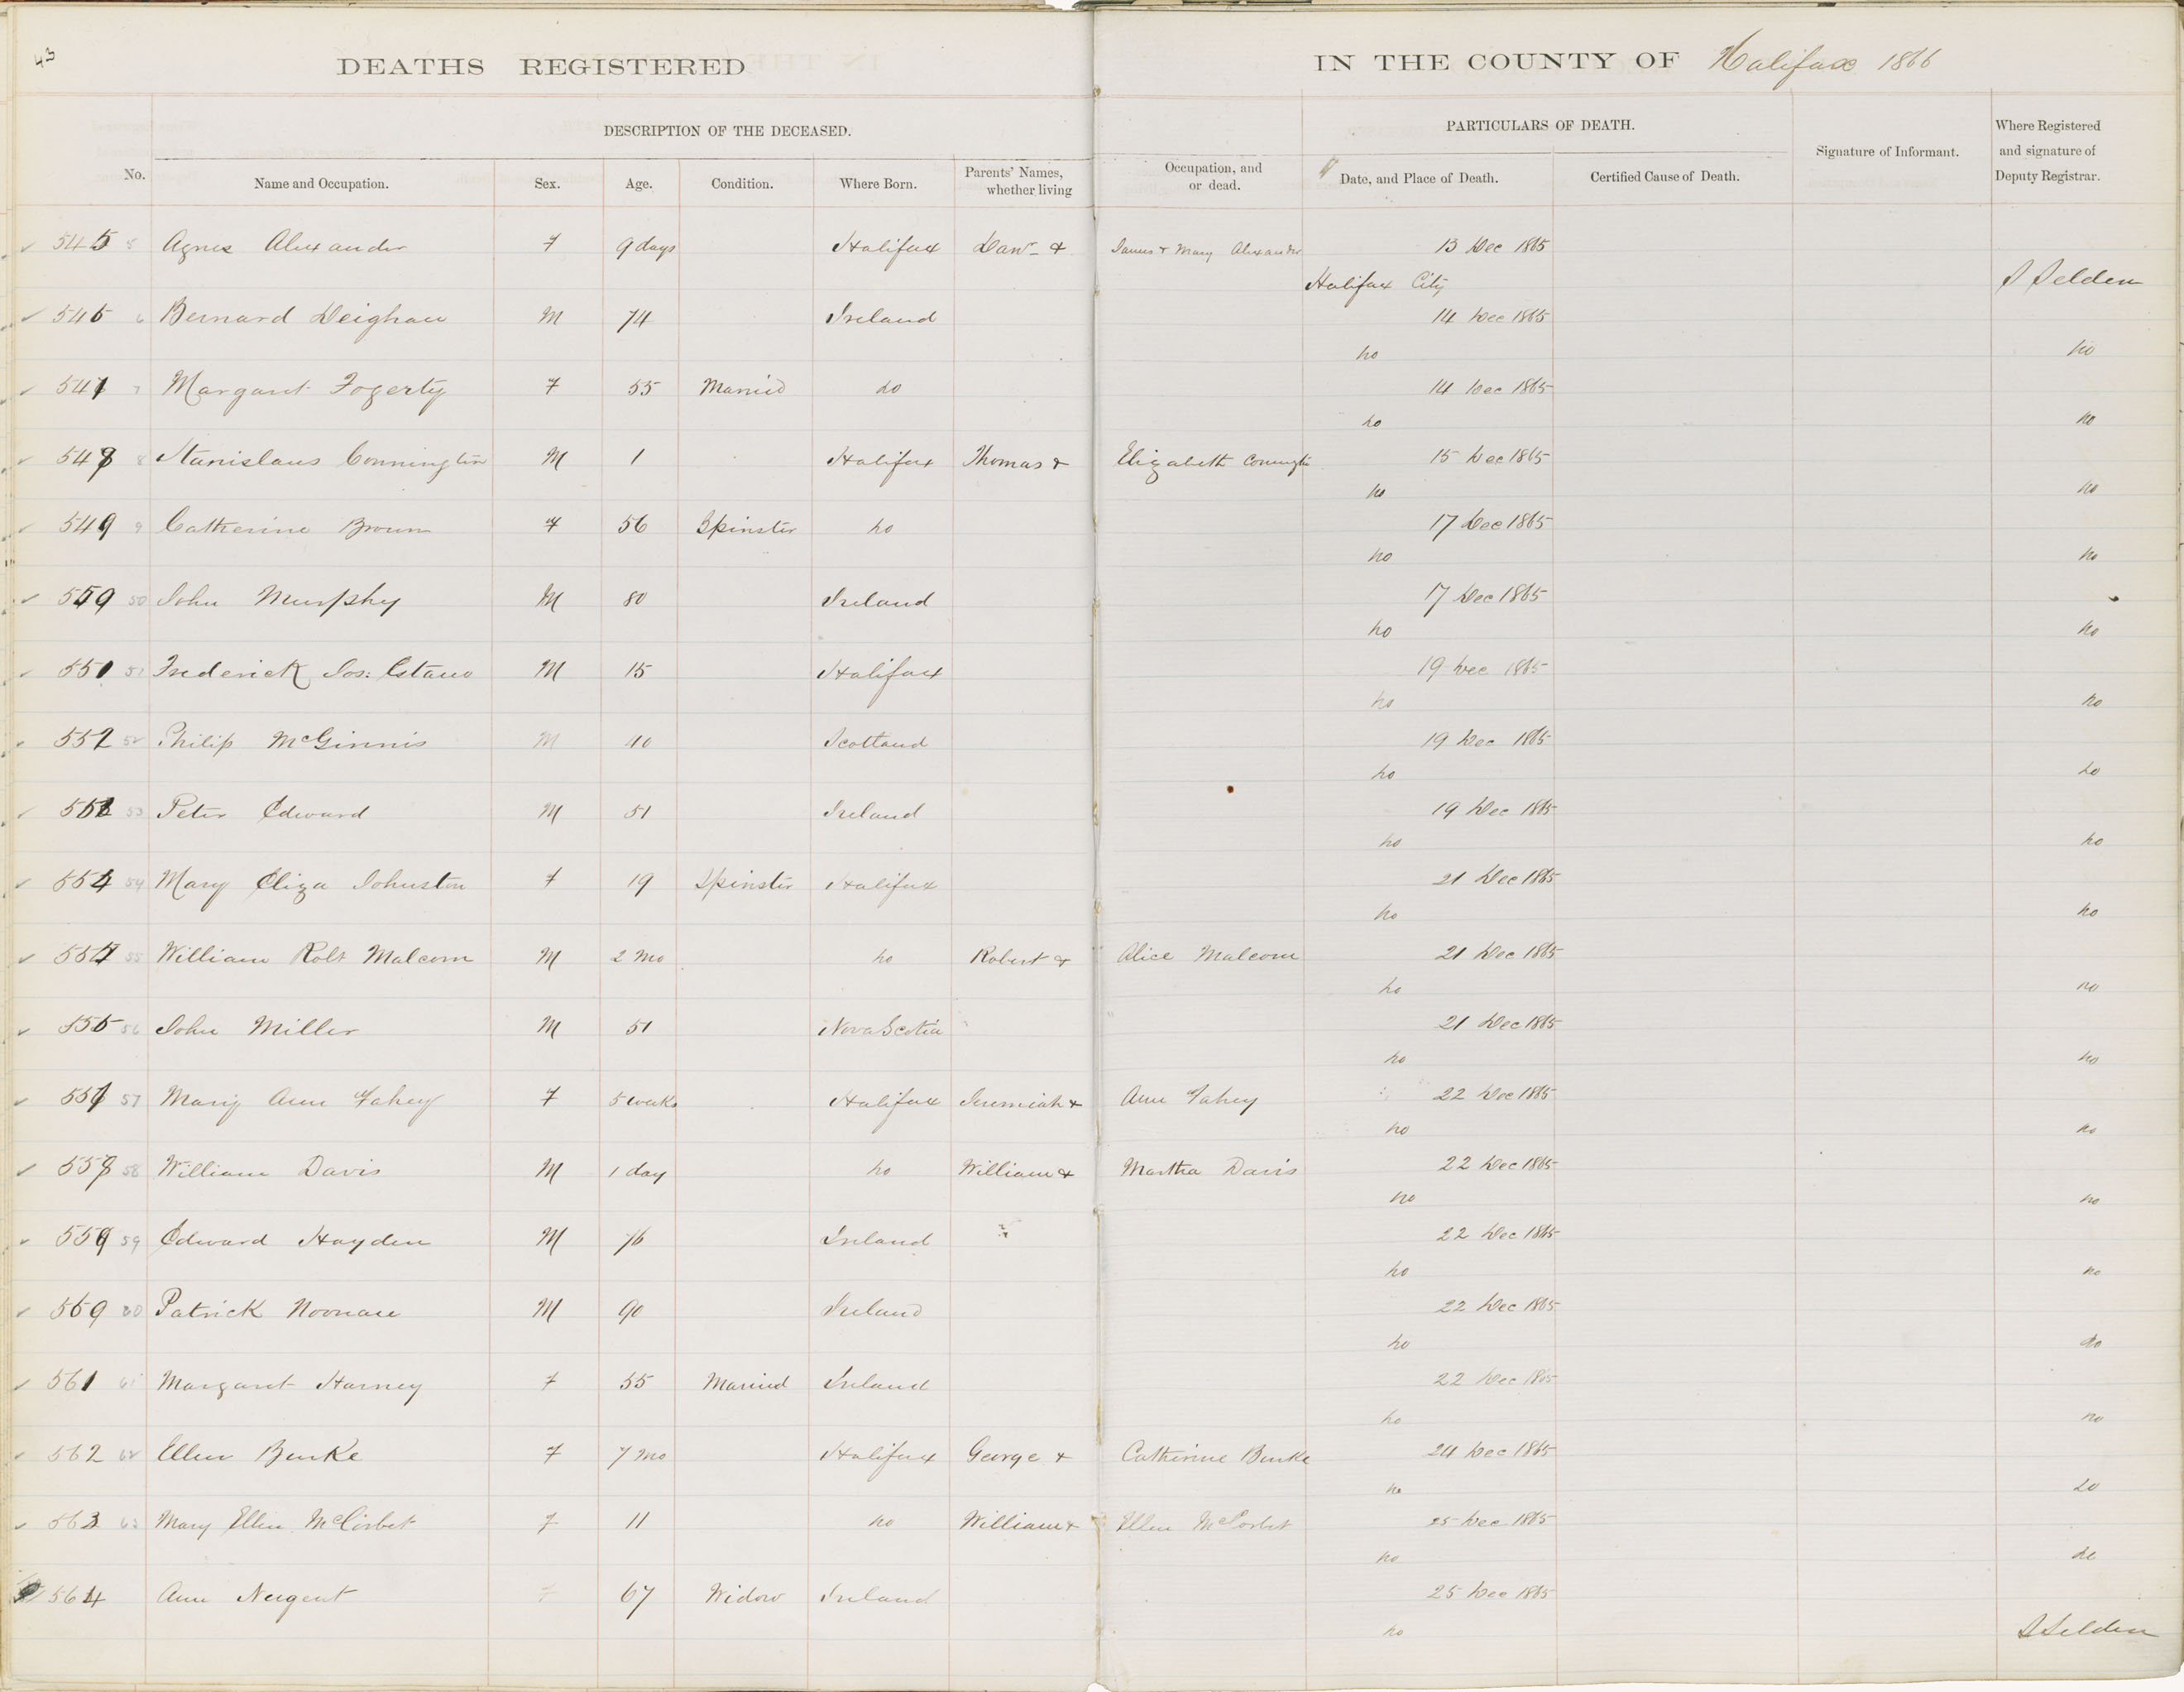 43
DEATHS REGISTERED IN THE COUNTY OF Halifax 1866
DESCRIPTION OF THE DECEASED. PARTICULARS OF DEATH.
No. Name and Occupation. Sex. Age. Condition. Where Born. Parents' Names, whether living Occupation, and or dead. Date, and Place of Death. Certified Cause of Death. Signature of Informant. Where Registered and signature of Deputy Registrar.
545 Agnes Alexander F 9 days Halifax & James & Mary Alexander 13 Dec 1865
Halifax City S Selden
546 6 Bernard Deighan M 74 Ireland 14 Dec 1865
do do
547 7 Margaret Fogerty F 55 Married do 14 Dec 1865
do do
548 8 Stanislaus Connington M 1 Halifax Thomas & Elizabeth Connington 15 Dec 1865
do do
549 9 Catherine Brown F 56 Spinster do 17 Dec 1865
do do
550 50 John Murphy M 80 Ireland 17 Dec 1865
do do
551 51 Frederick Jos: Estano M 15 Halifax 19 Dec 1865
do do
552 52 Philip McGinnis M 40 Scotland 19 Dec 1865
do do
553 53 Peter Edward M 51 Ireland 19 Dec 1865
do do
554 54 Mary Eliza Johnston F 19 Spinster Halifax 21 Dec 1865
do do
555 55 William Robt Malcom M 2 Mo do Robert & Alice Malcom 21 Dec 1865
do do
556 56 John Miller M 51 Nova Scotia 21 Dec 1865
do do
557 57 Mary Ann Fahey F 5 weeks Halifax Jeremiah & Ann Fahey 22 Dec 1865
do do
558 58 William Davis M 1 day do William & Martha Davis 22 Dec 1865
do do
559 59 Edward Hayden M 76 Ireland 22 Dec 1865
do do
560 60 Patrick Noonan M 90 Ireland 22 Dec 1865
do do
561 61 Margaret Harney F 55 Married Ireland 22 Dec 1865
do do
562 62 Ellen Burke F 7 Mo Halifax George & Catherine Burke 24 Dec 1865
do do
563 63 Mary Ellen McCorbet F 11 do William & Ellen McCorbet 25 Dec 1865
do do
564 Ann Nugent F 67 Widow Ireland 25 Dec 1865
do S Selden